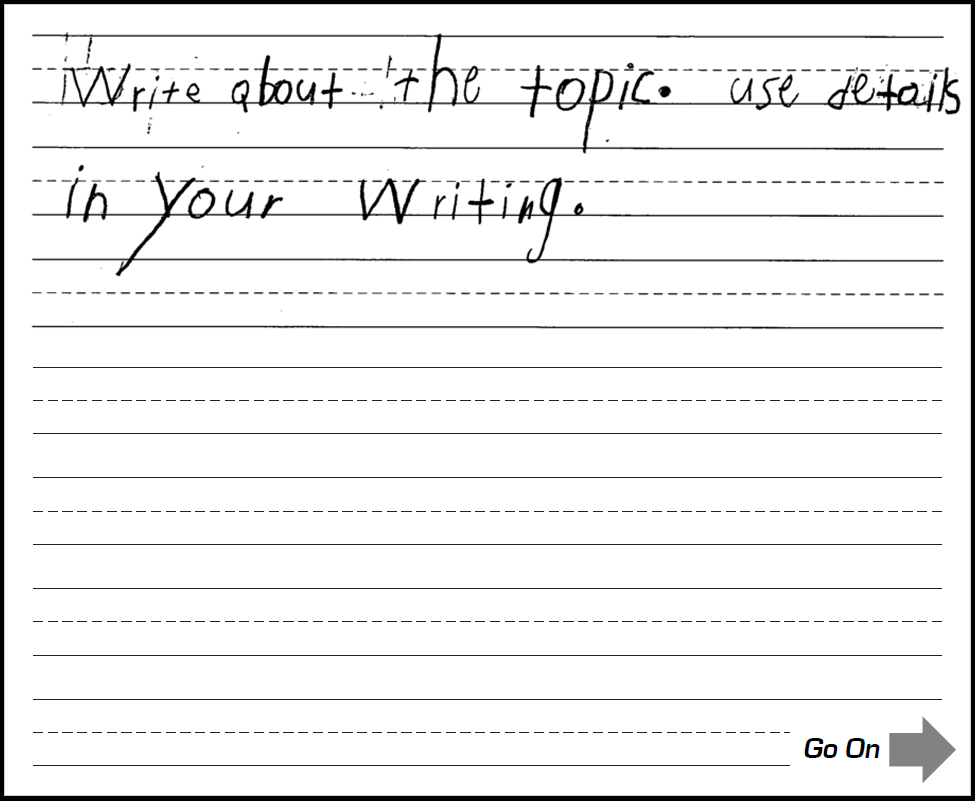 Write about the topic. use details
in your Writing.
Go On